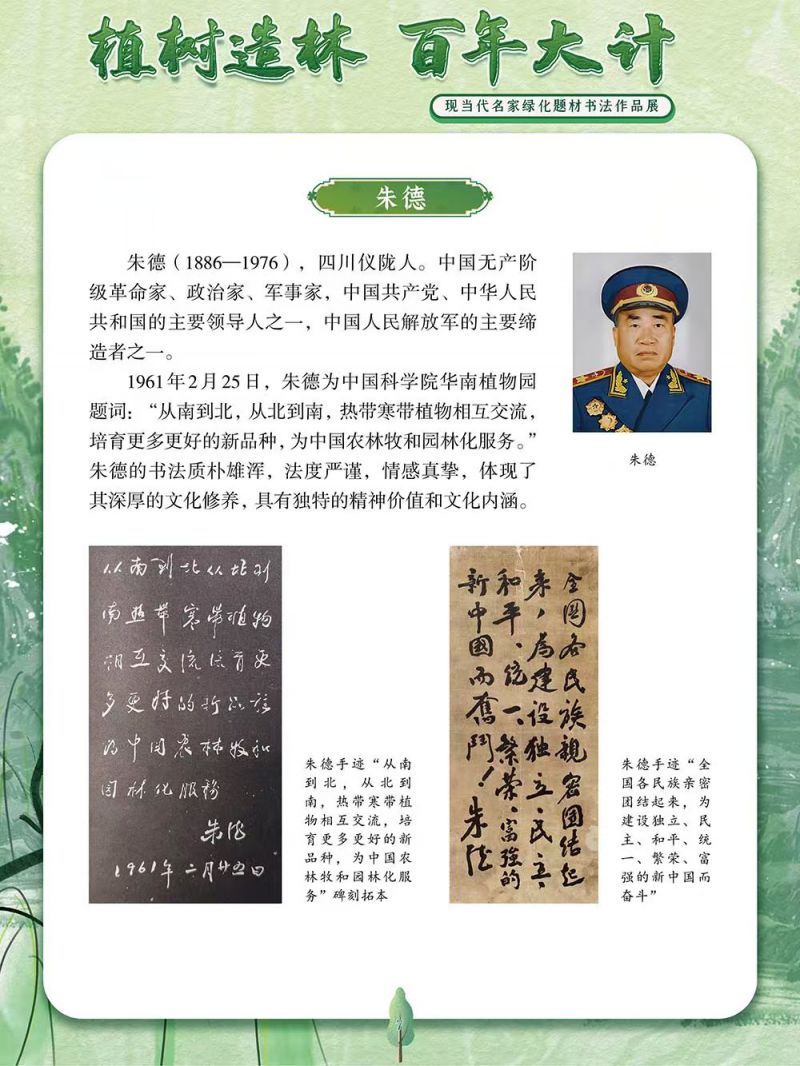 植树造林 百年大计
现当代名家绿化题材书法作品展
朱德
朱德（1886—1976），四川仪陇人。中国无产阶
级革命家、政治家、军事家，中国共产党、中华人民
共和国的主要领导人之一，中国人民解放军的主要缔
造者之一。
1961年2月25日，朱德为中国科学院华南植物园
题词：“从南到北，从北到南，热带寒带植物相互交流，
培育更多更好的新品种，为中国农林牧和园林化服务。”
朱德的书法质朴雄浑，法度严谨，情感真挚，体现了
其深厚的文化修养，具有独特的精神价值和文化内涵。
朱德
从南到北从北到
南热带寒带植物
相互交流培育更
多更好的新品种
为中国农林牧和
园林化服务
朱德
1961年二月廿五日
朱德手迹“从南
到北，从北到
南，热带寒带植
物相互交流，培
育更多更好的新
品种，为中国农
林牧和园林化服
务”碑刻拓本
全国各民族親密团结起
来，為建设独立、民主、
和平、统一、繁荣、富强的
新中國而奮鬥！朱德
朱德手迹“全
国各民族亲密
团结起来，为
建设独立、民
主、和平、统
一、繁荣、富
强的新中国而
奋斗”